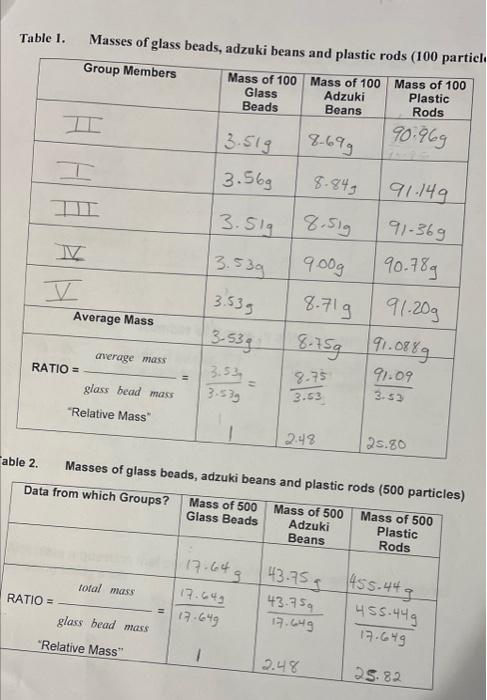 Table 1. Masses of glass beads, adzuki beans and plastic rods (100 particle
Group Members Mass of 100 Glass Beads Mass of 100 Adzuki Beans Mass of 100 Plastic Rods
II 3.51g 8.69g 90.96g
I 3.56g 8.84g 91.14g
III 3.51g 8.51g 91.36g
IV 3.53g 9.00g 90.78g
V 3.53g 8.71g 91.20g
Average Mass 3.53g 8.75g 91.088g
RATIO = average mass / glass bead mass = 3.53g / 3.53g = 8.75 / 3.53 91.09 / 3.53
"Relative Mass" 1 2.48 25.80
able 2. Masses of glass beads, adzuki beans and plastic rods (500 particles)
Data from which Groups? Mass of 500 Glass Beads Mass of 500 Adzuki Beans Mass of 500 Plastic Rods
17.64g 43.75g 455.44g
RATIO = total mass / glass bead mass = 17.64g / 17.64g 43.75g / 17.64g 455.44g / 17.64g
"Relative Mass" 1 2.48 25.82